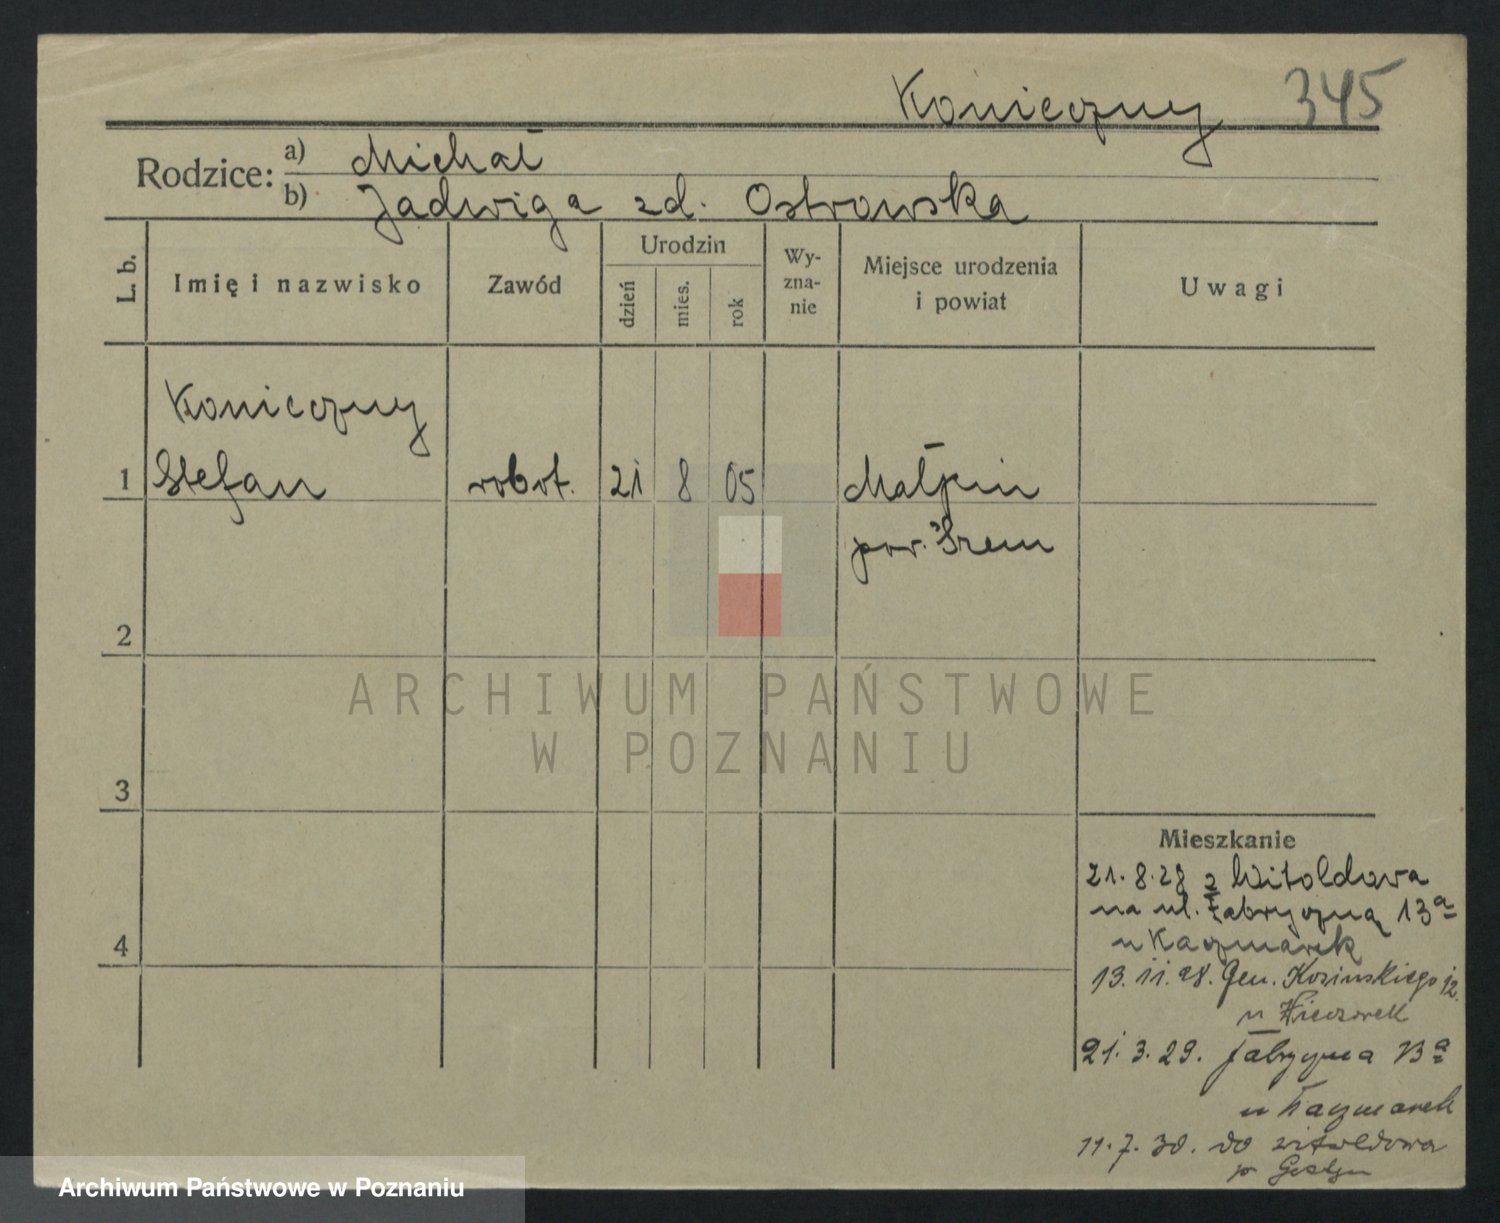 Konieczny 345
Rodzice: a) Michał
b) Jadwiga zd. Ostrowska
L. b. Imię i nazwisko Zawód Urodzin dzień mies. rok Wy-zna-nie Miejsce urodzenia i powiat Uwagi
Konieczny
1 Stefan robot. 21 8 05 Małpin
pow. Śrem
2
ARCHIWUM PAŃSTWOWE
W POZNANIU
3
Mieszkanie
21.8.28 z Witoldowa
na ul. Fabryczną 13a
4 u Kaczmarek
13.11.28. Gen. Kosinskiego 12.
u Wieczorek
21.3.29. Fabryczna 13a
u Kaczmarek
11.7.30. do Witoldowa
p Gostyn
Archiwum Państwowe w Poznaniu